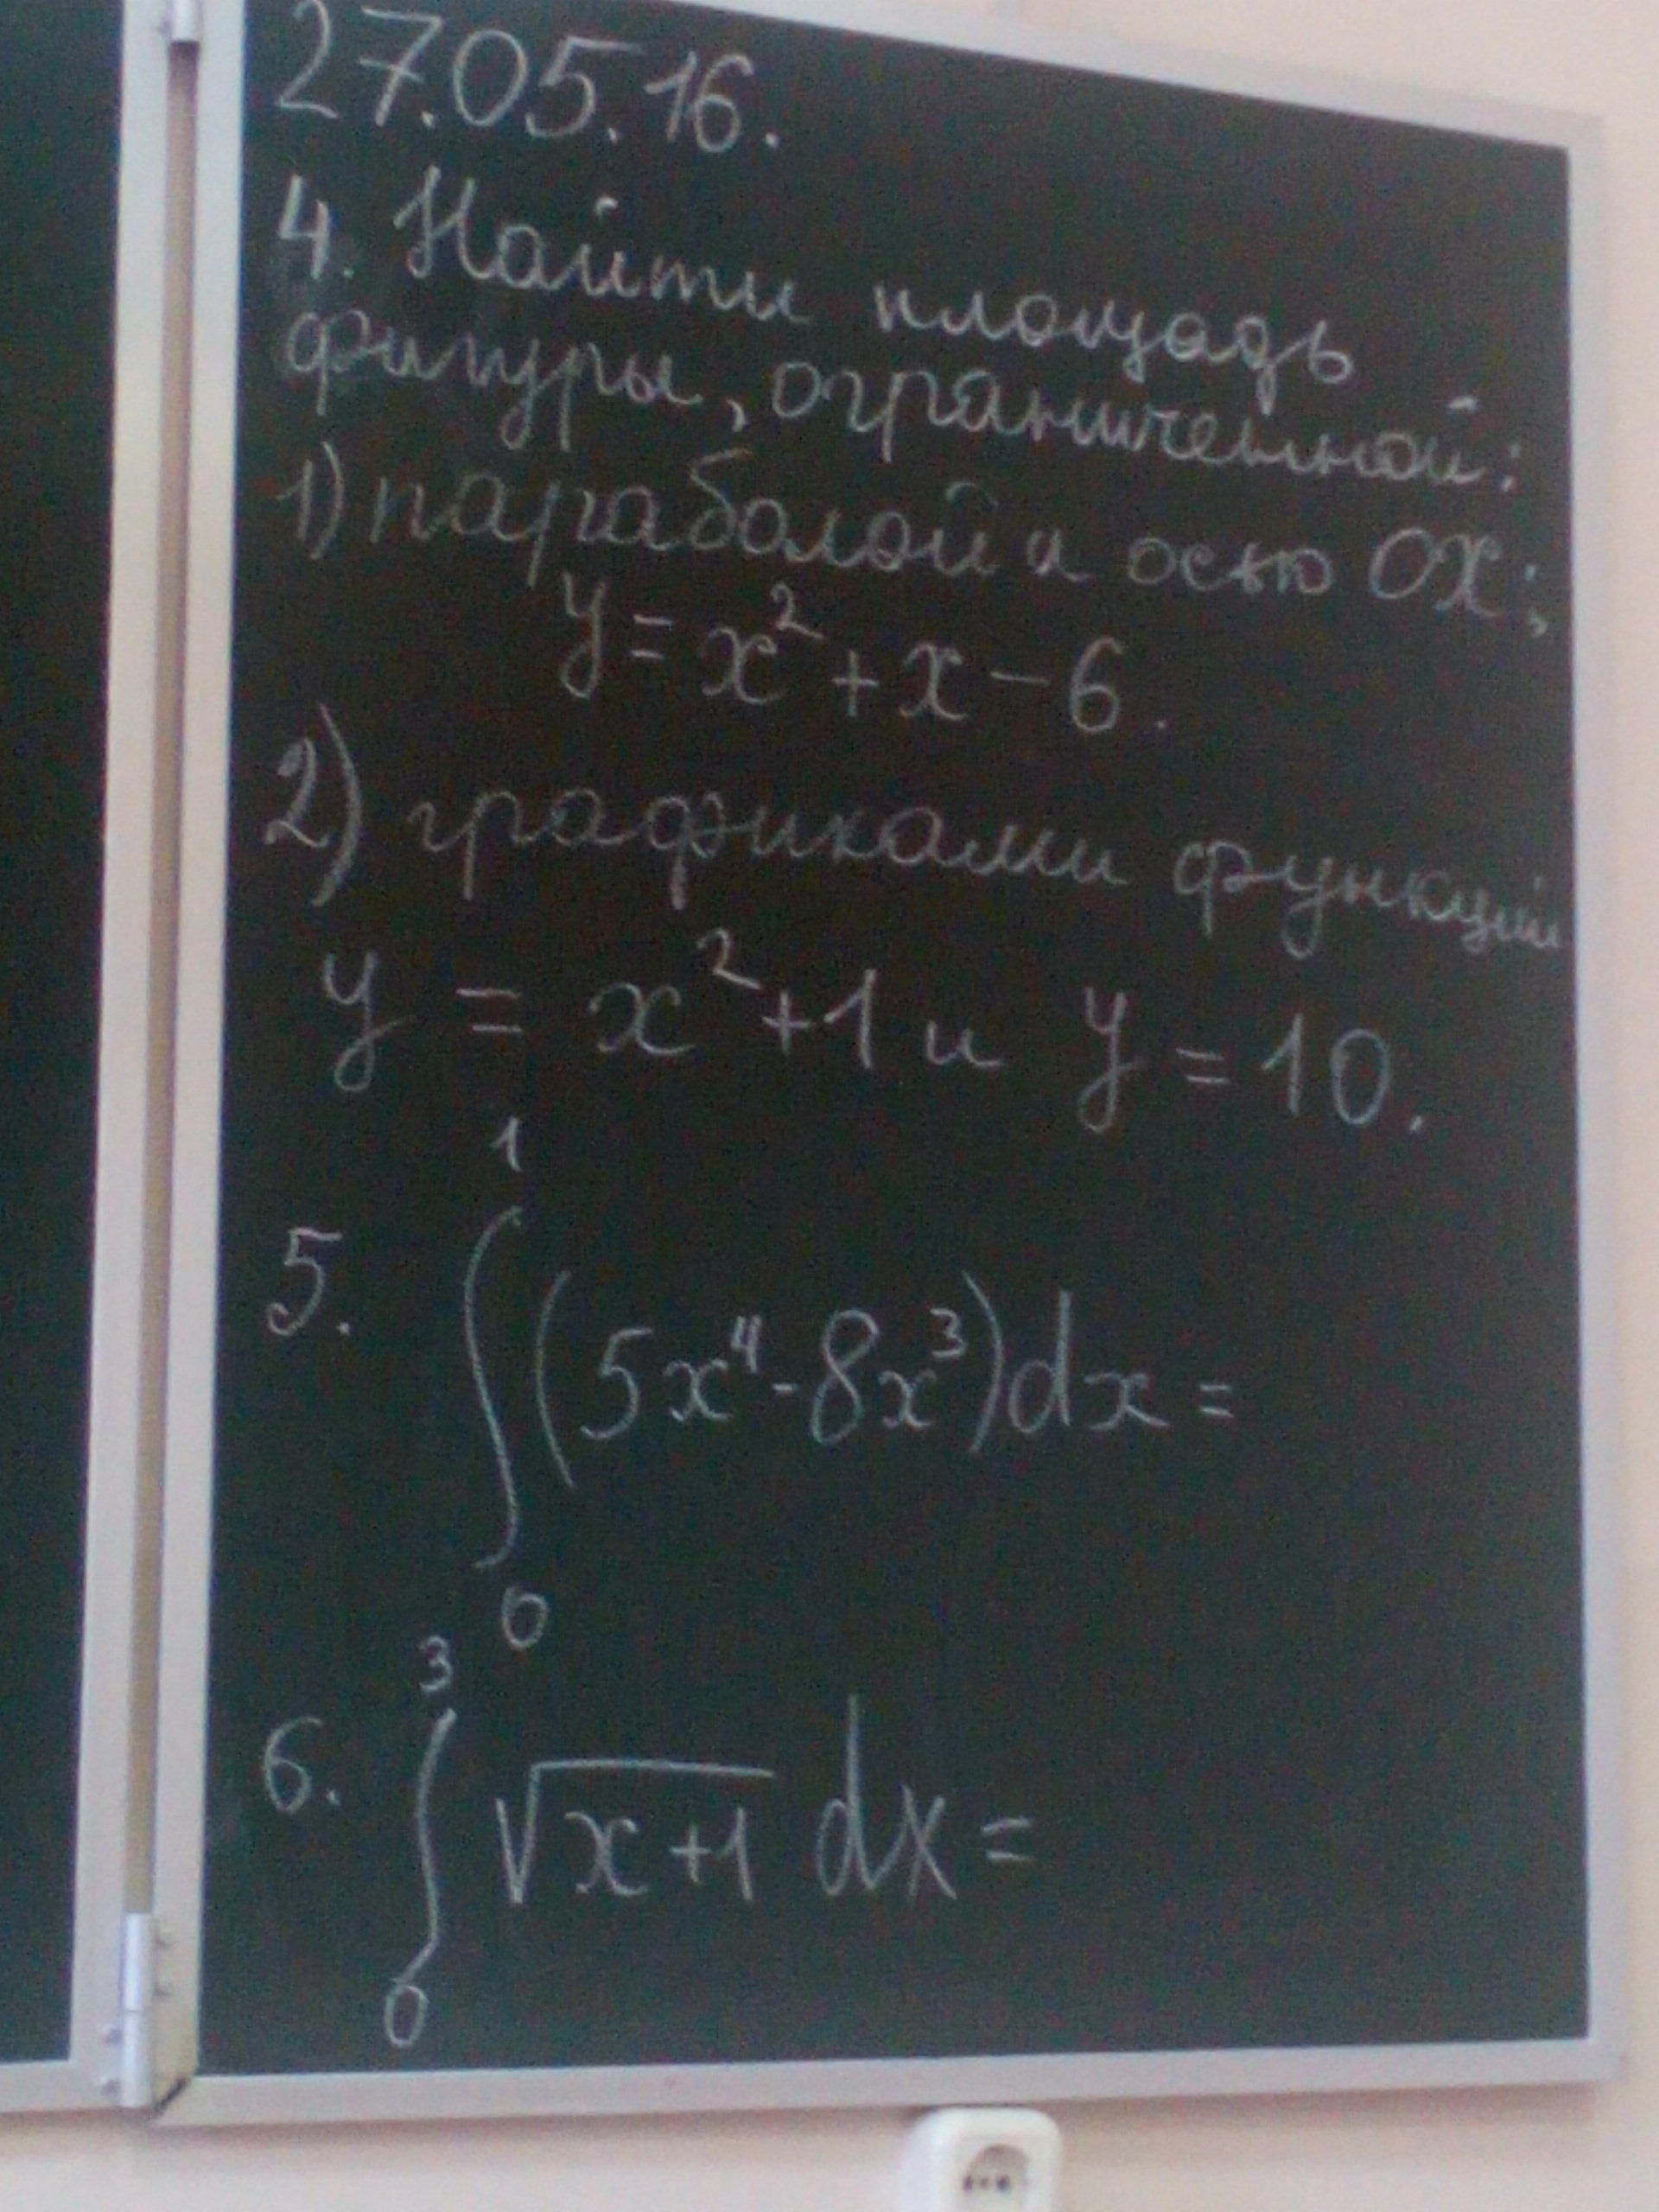 27.05.16.
4. Найти площадь
фигуры, ограниченной:
1) параболой и осью OX;
y = x² + x - 6.
2) графиками функций
y = x² + 1 и y = 10.
5. ∫₀¹ (5x⁴ - 8x³) dx =
6. ∫₀³ √(x+1) dx =